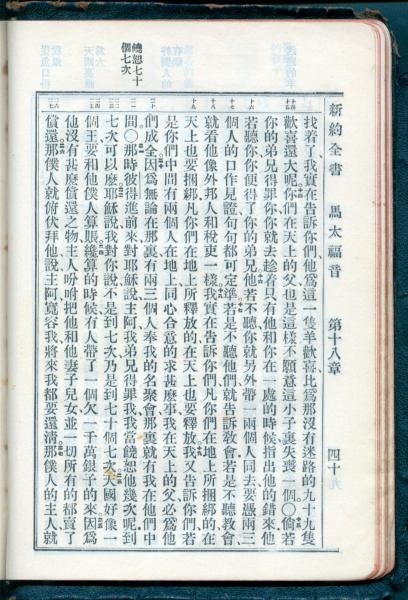 新約全書　馬太福音　第十八章　四十九
找着了我實在告訴你們他爲這一隻羊歡喜比爲那沒有迷路的九十九隻
歡喜還大呢你們在天上的父也是這樣不願意這小子裏失喪一個○倘若
你的弟兄得罪你你就去趁着只有他和你在一處的時候指出他的錯來他
若聽你你便得了你的弟兄他若不聽你就另外帶一兩個人同去要憑兩三
個人的口作見證句句都可定準若是不聽他們就告訴敎會若是不聽敎會
就看他像外邦人和稅吏一樣我實在告訴你們凡你們在地上所捆綁的在
天上也要捆綁凡你們在地上所釋放的在天上也要釋放我又告訴你們若
是你們中間有兩個人在地上同心合意的求甚麼事我在天上的父必爲他
們成全因爲無論在那裏有兩三個人奉我的名聚會那裏就有我在他們中
間○那時彼得進前來對耶穌說主阿我弟兄得罪我我當饒恕他幾次呢到
七次可以麼耶穌說我對你說不是到七次乃是到七十個七次天國好像一
個王要和他僕人算賬纔算的時候有人帶了一個欠一千萬銀子的來因爲
他沒有甚麼償還之物主人吩咐把他和他妻子兒女並一切所有的都賣了
償還那僕人就俯伏拜他說主阿寬容我將來我都要還清那僕人的主人就
饒恕七十
個七次